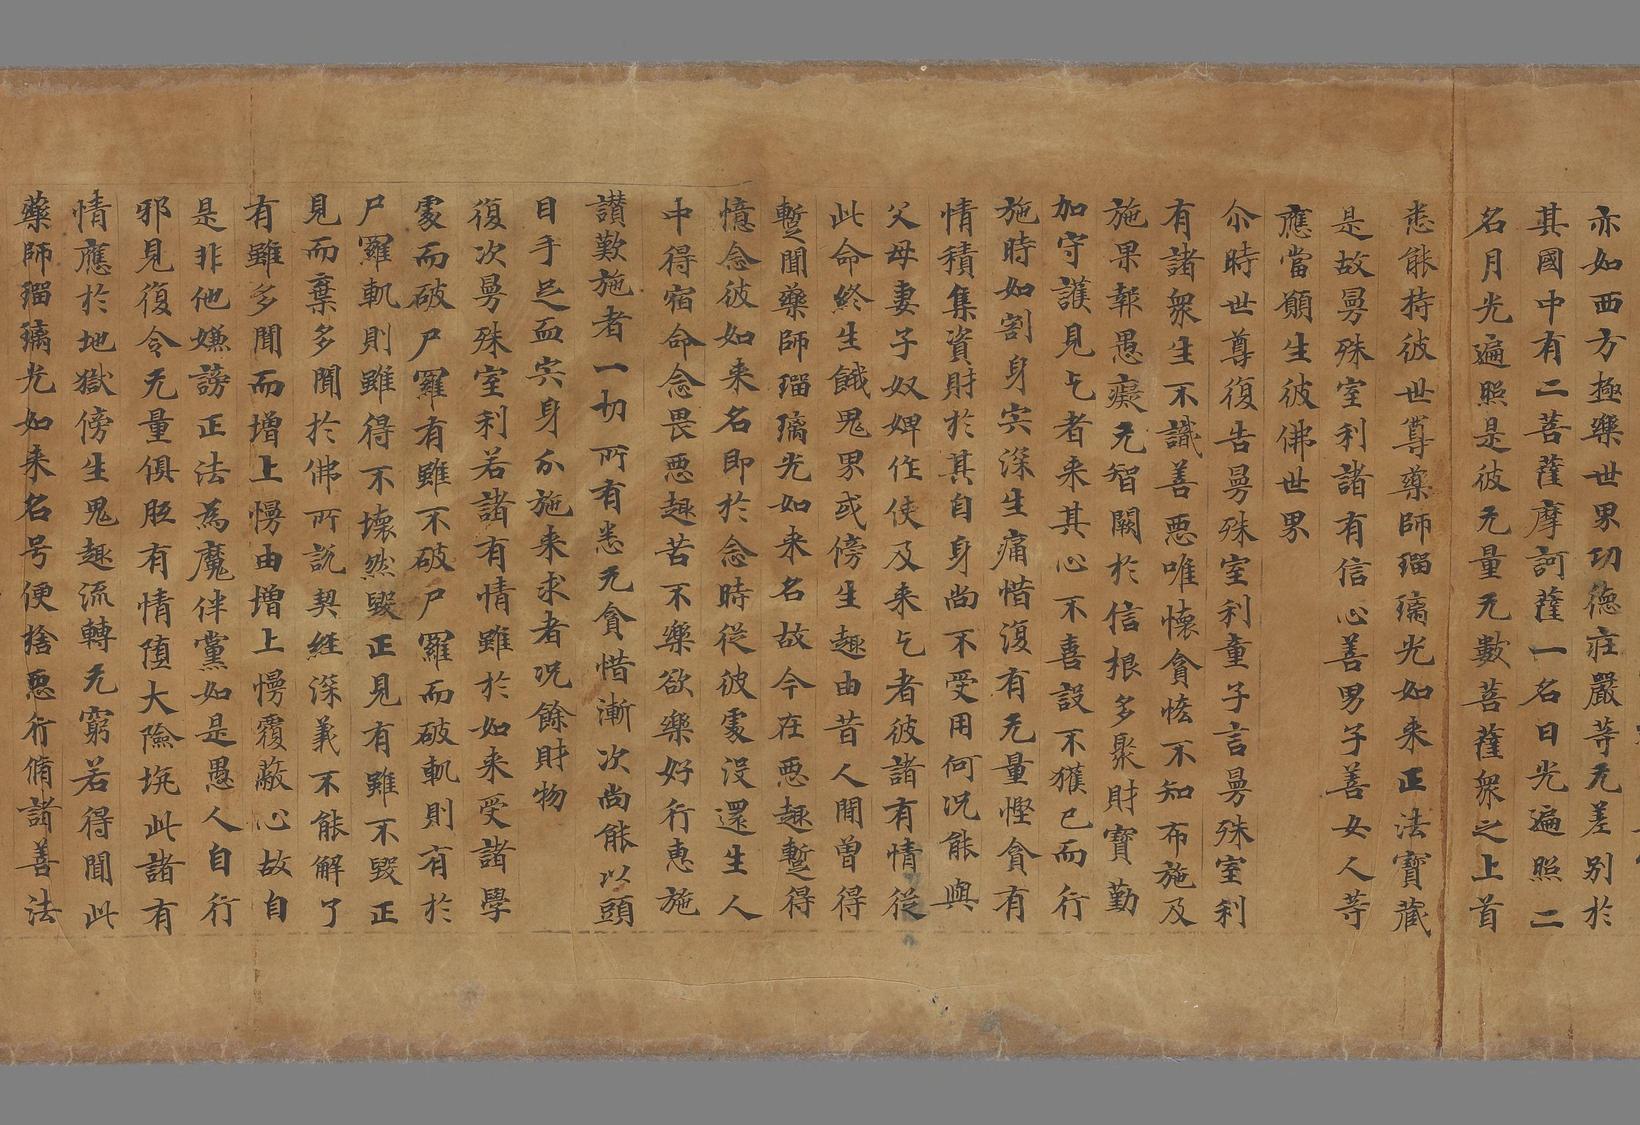 亦如西方極樂世界功德莊嚴等无差別於
其國中有二菩薩摩訶薩一名日光遍照二
名月光遍照是彼无量无數菩薩衆之上首
悉能持彼世尊藥師瑠璃光如来正法寶蔵
是故曼殊室利諸有信心善男子善女人等
應當願生彼佛世界
尒時世尊復告曼殊室利童子言曼殊室利
有諸衆生不識善惡唯懐貪悋不知布施及
施果報愚癡无智闕於信根多聚財寶勤
加守護見乞者来其心不喜設不獲已而行
施時如割身宍深生痛惜復有无量慳貪有
情積集資財於其自身尚不受用何況能與
父母妻子奴婢作使及来乞者彼諸有情從
此命終生餓鬼界或傍生趣由昔人間曾得
暫聞藥師瑠璃光如来名故今在惡趣暫得
憶念彼如来名即於念時從彼處没還生人
中得宿命念畏惡趣苦不樂欲樂好行惠施
讃歎施者一切所有悉无貪惜漸次尚能以頭
目手足血宍身分施来求者況餘財物
復次曼殊室利若諸有情雖於如来受諸學
處而破尸羅有雖不破尸羅而破軌則有於
尸羅軌則雖得不壊然毀正見有雖不毀正
見而棄多聞於佛所說契経深義不能解了
有雖多聞而増上慢由増上慢覆蔽心故自
是非他嫌謗正法為魔伴黨如是愚人自行
邪見復令无量俱胝有情墮大險坑此諸有
情應於地獄傍生鬼趣流轉无窮若得聞此
藥師瑠璃光如来名号便捨惡行脩諸善法